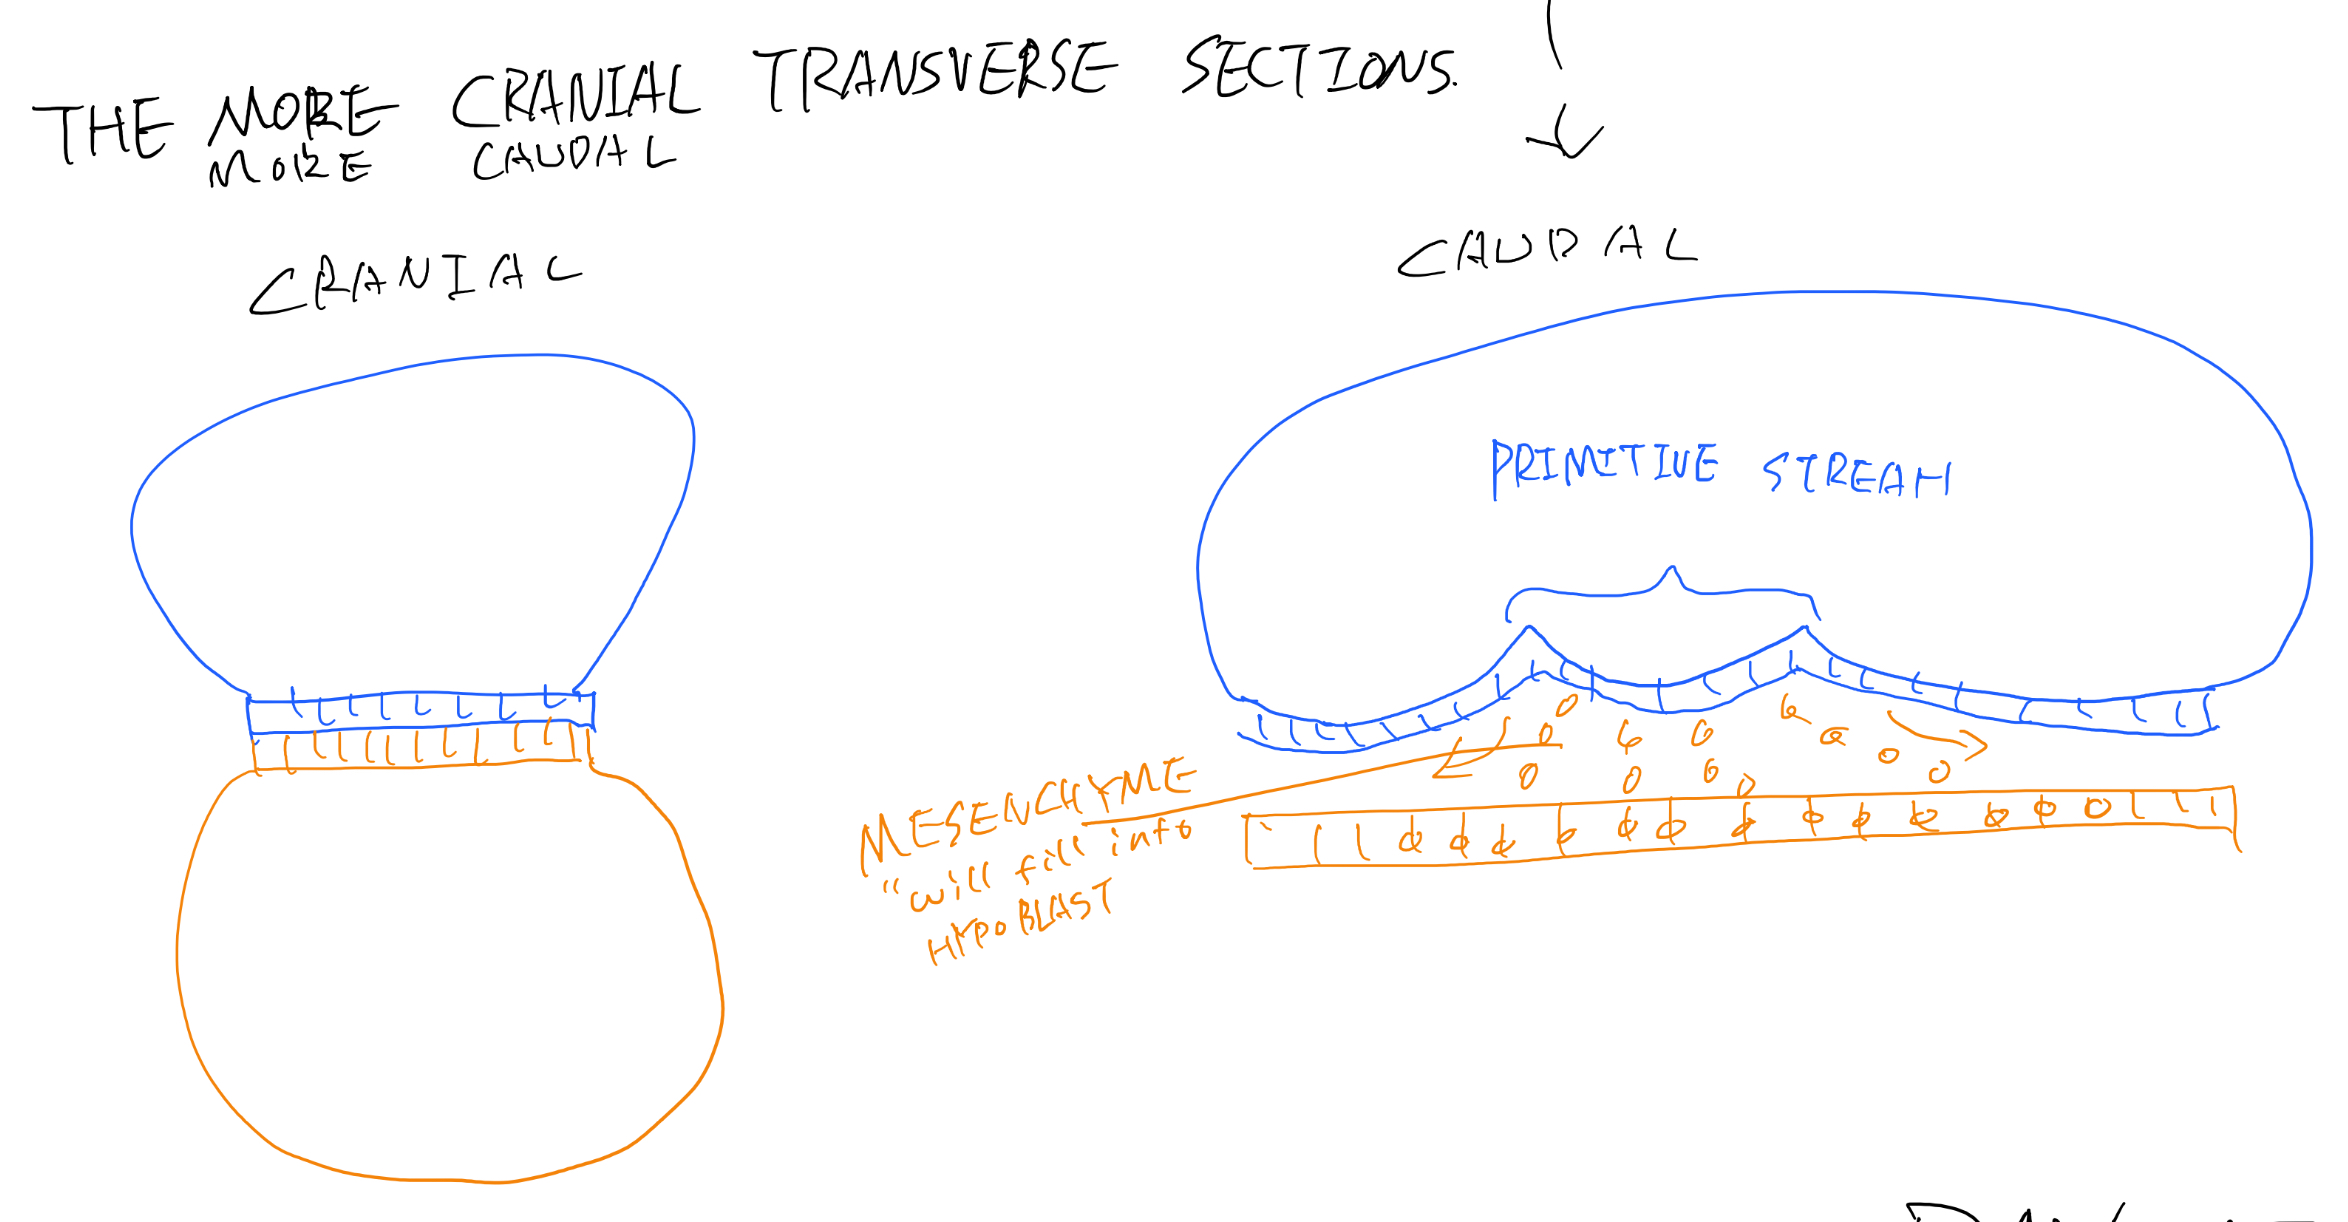 THE MORE CRANIAL TRANSVERSE SECTIONS.
MORE CAUDAL
CRANIAL
CAUDAL
PRIMITIVE STREAM
MESENCHYME
"will fill into
HYPOBLAST